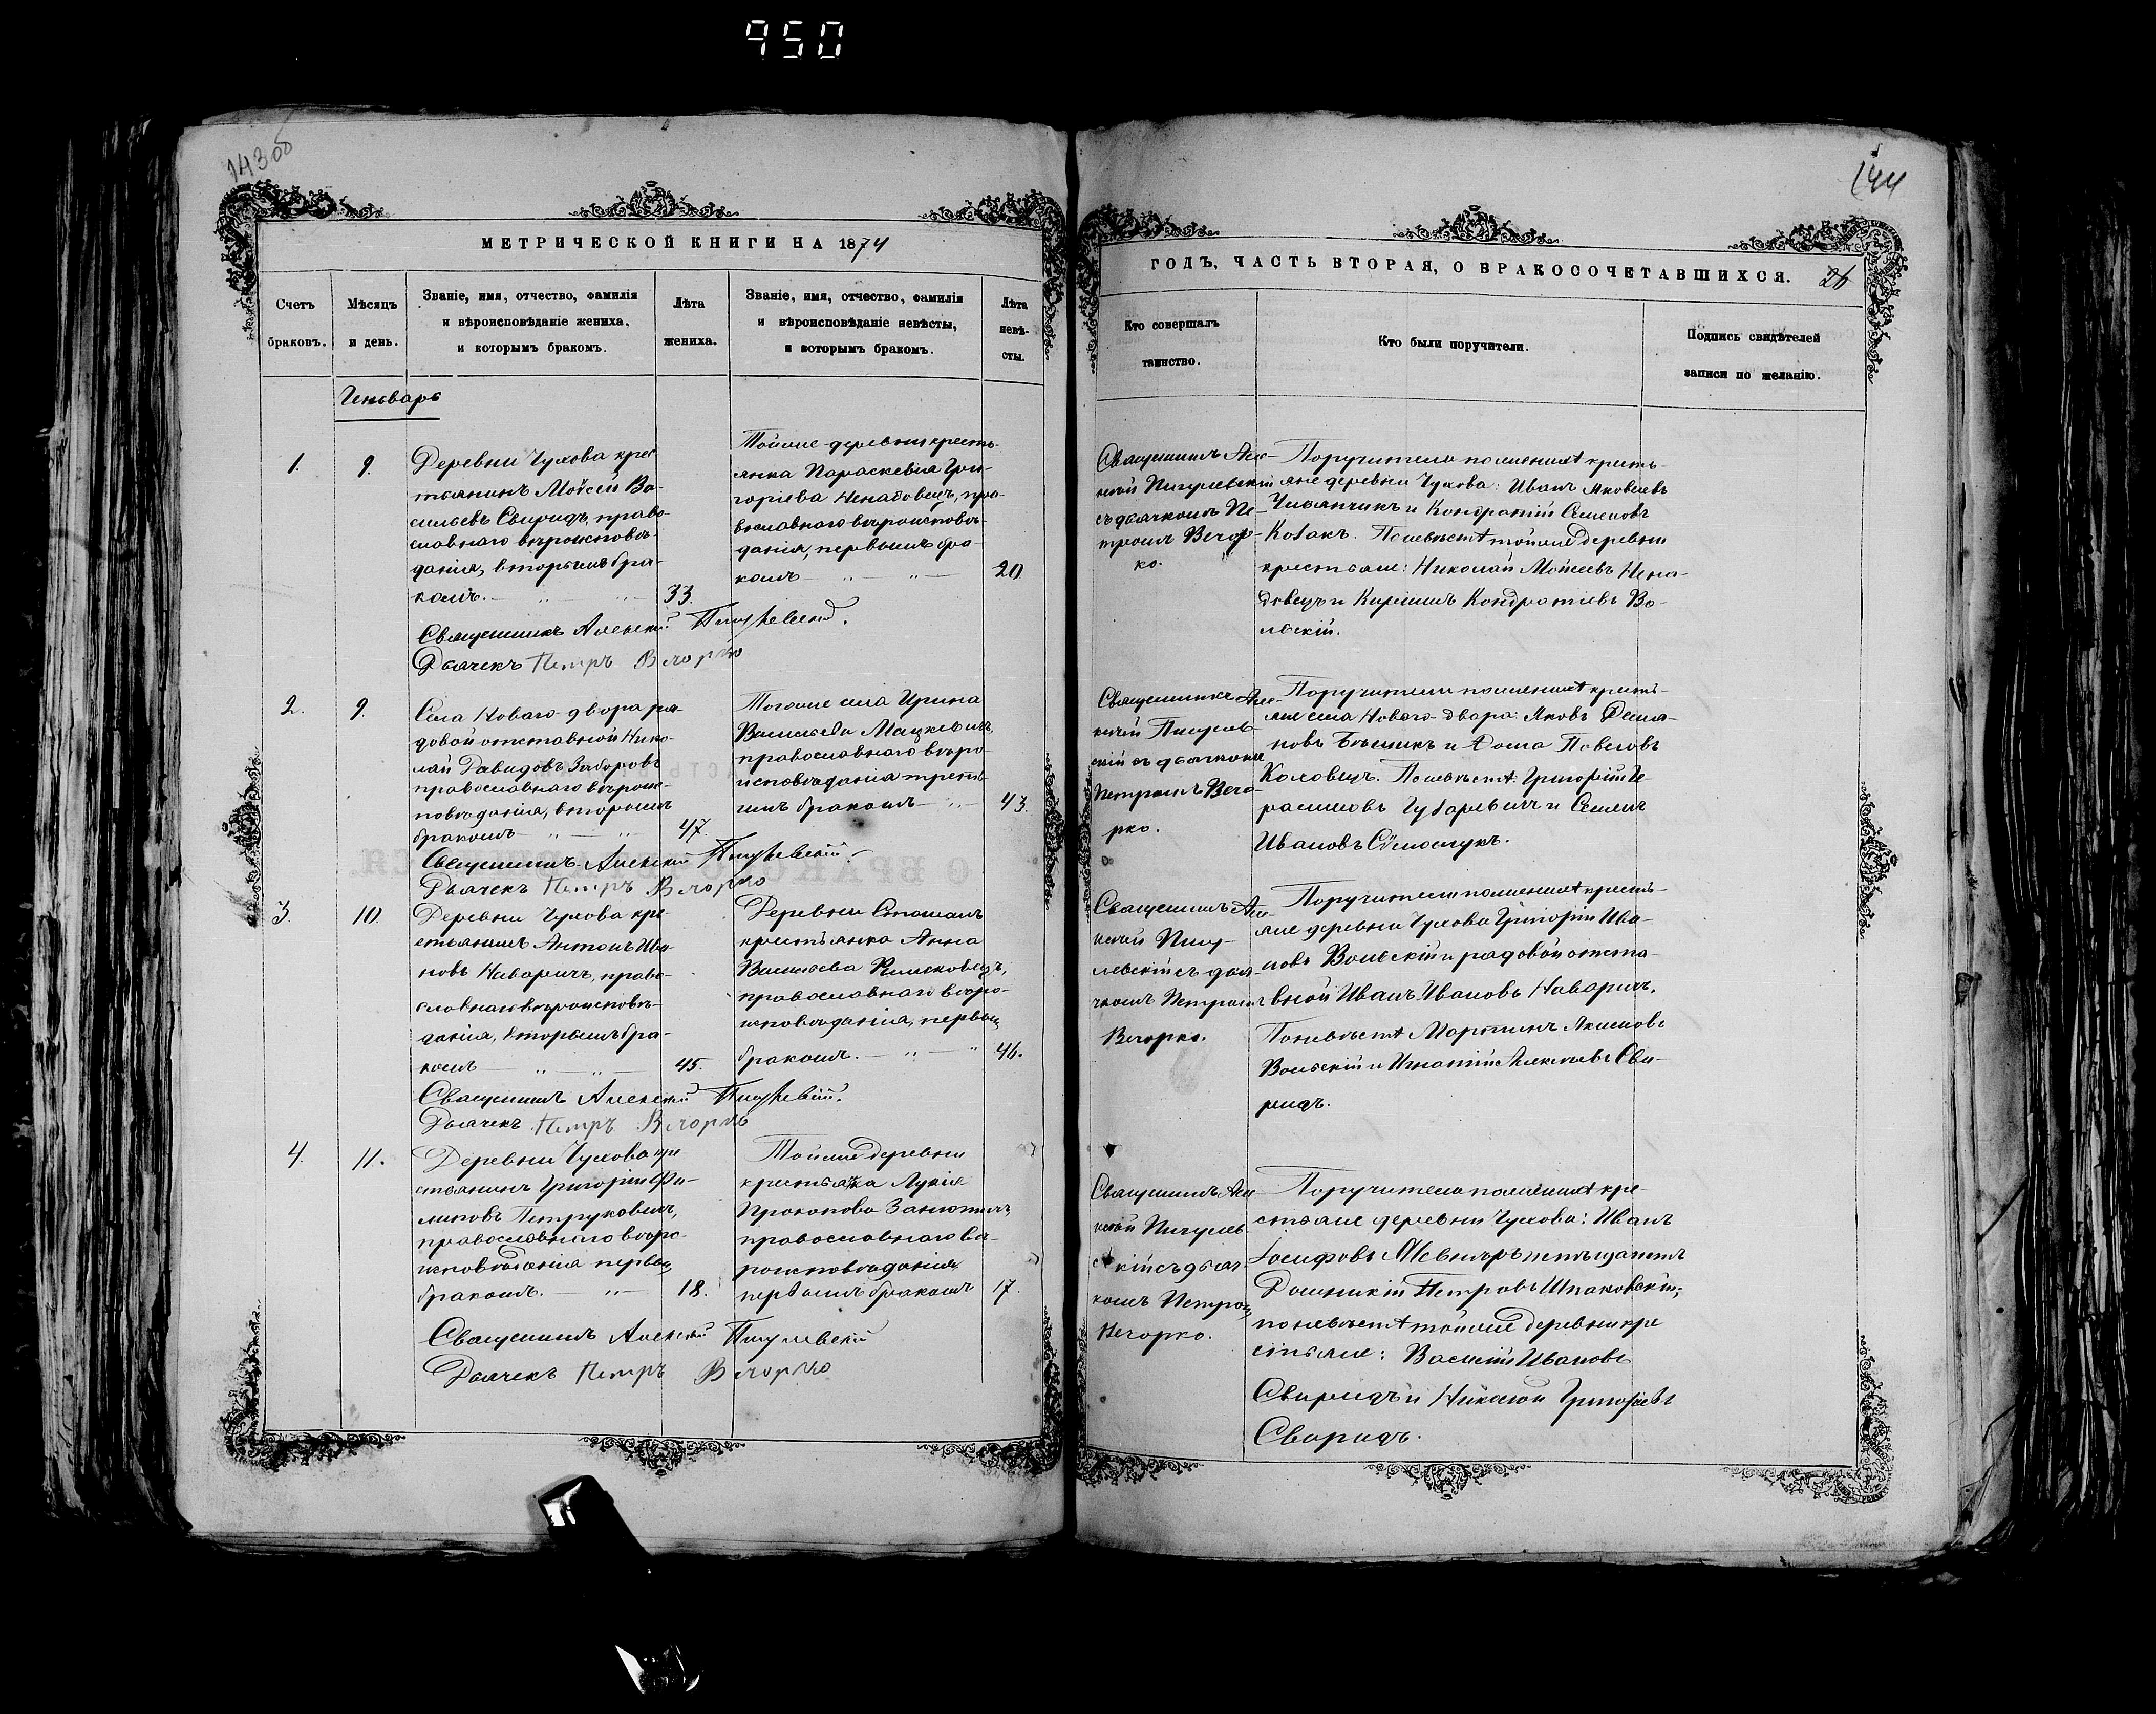 950
143об
144
МЕТРИЧЕСКОЙ КНИГИ НА 1874
Счетъ
браковъ.
Мѣсяцъ
и день.
Званіе, имя, отчество, фамилія
и вѣроисповѣданіе жениха,
и которымъ бракомъ.
Лѣта
жениха.
Званіе, имя, отчество, фамилія
и вѣроисповѣданіе невѣсты,
и которымъ бракомъ.
Лѣта
невѣ-
сты.
Генварь
1.
9.
Деревни Чухова крес
тьянинъ Мойсей Ва-
сильевъ Свиридъ, право
славнаго вѣроисповѣ-
данія, вторымъ бра-
комъ.
33.
Тойже деревни кресть-
янка Параскевія Гри-
горіева Ненадовецъ, пра-
вославнаго вѣроисповѣ-
данія, первымъ бра-
комъ
20
Священникъ Алексій Пигулевскій.
Дьячекъ Петръ Вечорко
2.
9.
Села Новаго-двора ря-
довой отставной Нико-
лай Давидовъ Заборовъ
православнаго вѣроис-
повѣданія, вторымъ
бракомъ
47.
Тогоже села Ирина
Васильева Мацкевичъ,
православнаго вѣро-
исповѣданія треть-
имъ бракомъ
43.
Священникъ Алексій Пигулевскій.
Дьячекъ Петръ Вечорко
3.
10.
Деревни Чухова кре-
стьянинъ Антонъ Ива-
новъ Наваричъ, право-
славнаго вѣроисповѣ-
данія, вторымъ бра-
комъ
45.
Деревни
крестьянка Анна
Васильева
православнаго вѣро-
исповѣданія, первым
бракомъ.
46.
Священникъ Алексій Пигулевскій.
Дьячекъ Петръ Вечорко
4.
11.
Деревни Чухова кре
стьянинъ Григорій Фи-
липовъ Петруковичъ,
православнаго вѣро-
исповѣданія первым
бракомъ.
18.
Тойже деревни
крестьянка Лукія
Прокопова
православнаго вѣ-
роисповѣданія
первымъ бракомъ
17.
Священникъ Алексій Пигулевскій
Дьячекъ Петръ Вечорко
ГОДЪ, ЧАСТЬ ВТОРАЯ, О БРАКОСОЧЕТАВШИХСЯ.
26
Кто совершалъ
таинство.
Кто были поручители.
Подпись свидѣтелей
записи по желанію.
Священникъ Але-
ксій Пигулевскій
съ дьячкомъ Пе-
тромъ Вечор-
ко.
Поручители по женихѣ кресть-
яне деревни Чухова: Иванъ Яковлевъ
и Кондратій Семеновъ
Козакъ. По невѣстѣ тойже деревни
крестьяне: Николай Мойсеевъ Нена-
довецъ и Кондратіевъ Во-
льскій.
Священникъ Але-
ксій Пигулев-
скій съ дьячкомъ
Петромъ Вечо-
рко.
Поручители по женихѣ кресть-
яне села Новаго-двора: Яковъ Демья-
новъ и Ѳома Павловъ
Коловецъ. По невѣстѣ: Григорій Ге-
расимовъ Губаревичъ и
Ивановъ
Священникъ Але-
ксій Пигу-
левскій съ дья-
чкомъ Петромъ
Вечорко.
Поручители по женихѣ кресть-
яне деревни Чухова Григорій Ива-
новъ Вольскій и рядовой отста-
вной Иванъ Ивановъ Наваричъ.
По невѣстѣ Мартинъ Якимовъ
Вольскій и Игнатій Алексѣевъ Сви-
ридъ.
Священникъ Але-
ксій Пигулев-
скій съ дьяч
комъ Петром
Вечорко.
Поручители по женихѣ кре-
стьяне деревни Чухова: Иванъ
Іосифовъ
Петровъ Шпаковскій;
по невѣстѣ тойже деревни кре
стьяне: Василій Ивановъ
Свиридъ и Николай Григорьевъ
Свиридъ.